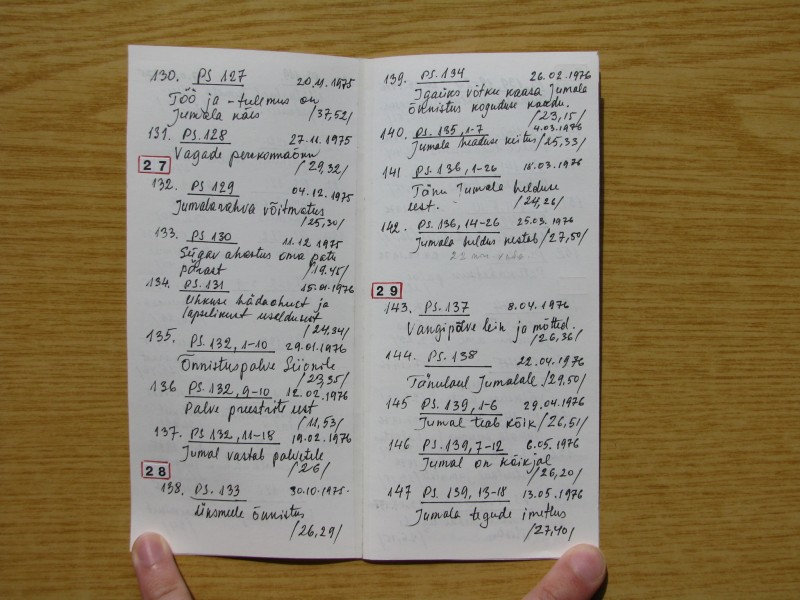 130. PS 127 20.11.1975
Töö ja -tulemus on
Jumala käes /37,52/
131. PS.128 27.11.1975
Vagade perekonnaõnn
/29,32/
27
132. PS 129 04.12.1975
Jumalarahva võitmatus
/25,30/
133. PS 130 11.12 1975
Sügav ahastus oma patu
pärast /19.45/
134. PS.131 15.01.1976
Uhkuse hädaohust ja
lapselikust usaldusest
/24,34/
135. PS.132, 1-10 29.01.1976
Õnnistuspalve Siionile
/23,35/
136 PS.132, 9-10 12.02.1976
Palve preestrite eest
/11,53/
137. PS 132, 11-18 19.02.1976
Jumal vastab palvetele
/26/
28
138. PS.133 30.10.1975.
Üksmeele õnnistus
/26,29/
139. PS.134 26.02.1976
Igaüks võtku kaasa Jumala
õnnistus koguduse kaudu.
/23,15/
140. PS.135, 1-7 4.03.1976
Jumala headuse kiitus /25,33/
141 PS.136, 1-26 18.03.1976
Tänu Jumala helduse
eest. /24,26/
142. PS.136, 14-26 25.03.1976
Jumala heldus kestab /27,50/
29
143. PS.137 8.04.1976
Vangipõlve lein ja mõtted.
/26,36/
144. PS.138 22.04.1976
Tänulaul Jumalale /29,50/
145 PS.139, 1-6 29.04.1976
Jumal teab kõik /26,51/
146 PS.139, 7-12 6.05.1976
Jumal on kõikjal
/26,20/
147 PS.139, 13-18 13.05.1976
Jumala tegude imetlus
/27,40/